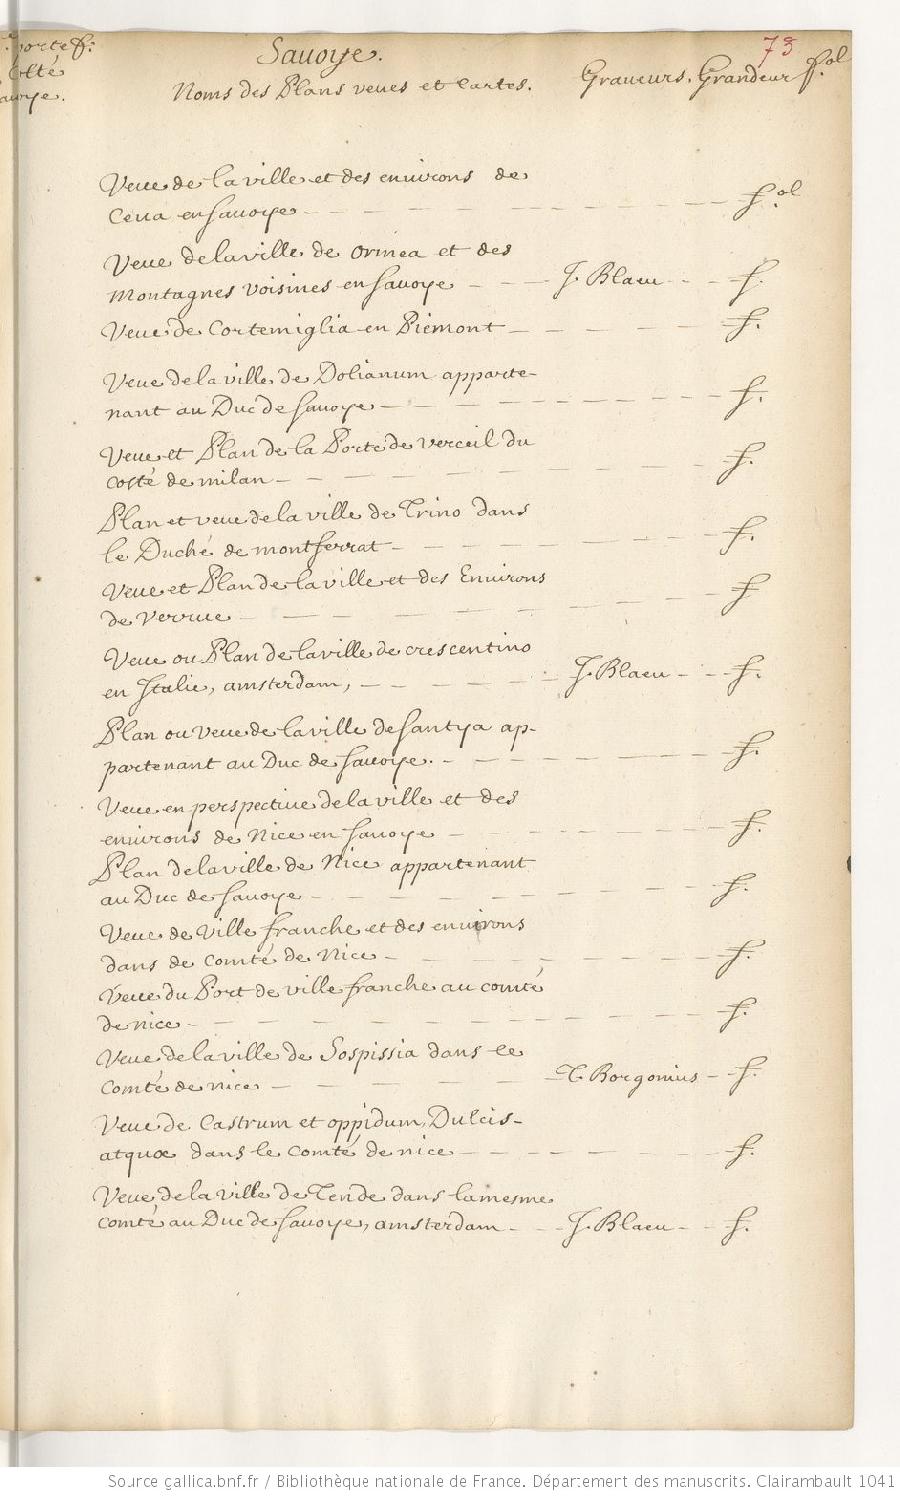 portef.
Cotté
Savoye.
Savoye.
73
Noms des Plans veues et Cartes. Graveurs. Grandeur f.ol
Veue de la ville et des environs de
Ceva en Savoye f.ol
Veue de la ville de Ormea et des
Montagnes voisines en Savoye J. Blaeu f.
Veue de Cortemiglia en Piemont f.
Veue de la ville de Dolianum apparte-
nant au Duc de Savoye f.
Veue et Plan de la Porte de Verceil du
costé de milan f.
Plan et veue de la ville de Trino dans
le Duché de montferrat f.
Veue et Plan de la ville et des Environs
de Verrue f
Veue ou Plan de la ville de crescentino
en Italie, amsterdam, J. Blaeu f.
Plan ou Veue de la ville de Santya ap-
partenant au Duc de Savoye. f.
Veue en perspective de la ville et des
environs de Nice en Savoye f.
Plan de la ville de Nice appartenant
au Duc de Savoye f.
Veue de Ville franche et des environs
dans de Comté de Nice f.
Veue du Port de ville franche au comté
de nice f.
Veue de la ville de Sospissia dans le
Comté de nice T. Borgonius f.
Veue de Castrum et oppidum, Dulcis-
atquæ dans le Comté de nice f.
Veue de la Ville de Tende dans la mesme
comté au Duc de Savoye, amsterdam J. Blaeu f.
Source gallica.bnf.fr / Bibliothèque nationale de France. Département des manuscrits. Clairambault 1041